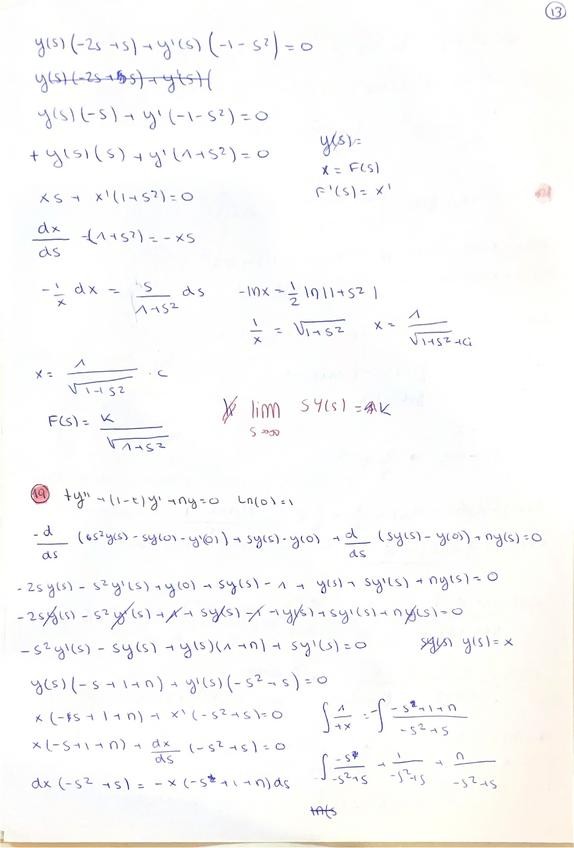 13
y(s)(-2s+s)+y'(s)(-1-s²)=0
y(s)(-2s+s)+y'(s)(
y(s)(-s)+y'(-1-s²)=0
+y(s)(s)+y'(1+s²)=0
y(s)=
x=F(s)
F'(s)=x'
xs+x'(1+s²)=0
dx/ds -(1+s²)=-xs
-1/x dx = s/(1+s²) ds   -lnx=1/2 ln|1+s²|
1/x = √(1+s²)   x= 1/(√(1+s²)+C)
x= 1/√(1+s²) · C
F(s)= K/√(1+s²)   lim s→∞ sy(s)=K
19 ty''+(1-t)y'+ny=0   Ln(0)=1
-d/ds (s²y(s)-sy(0)-y'(0))+sy(s)-y(0)+d/ds(sy(s)-y(0))+ny(s)=0
-2sy(s)-s²y'(s)+y(0)+sy(s)-1+y(s)+sy'(s)+ny(s)=0
-2sy(s)-s²y'(s)+1+sy(s)-1+y(s)+sy'(s)+ny(s)=0
-s²y'(s)-sy(s)+y(s)(1+n)+sy'(s)=0   y(s)=x
y(s)(-s+1+n)+y'(s)(-s²+s)=0
x(-s+1+n)+x'(-s²+s)=0   ∫1/+x =-∫(-s+1+n)/(-s²+s)
x(-s+1+n)+dx/ds(-s²+s)=0
∫-s/(-s²+s) + 1/(-s²+s) + n/(-s²+s)
dx(-s²+s)=-x(-s+1+n)ds
ln(s